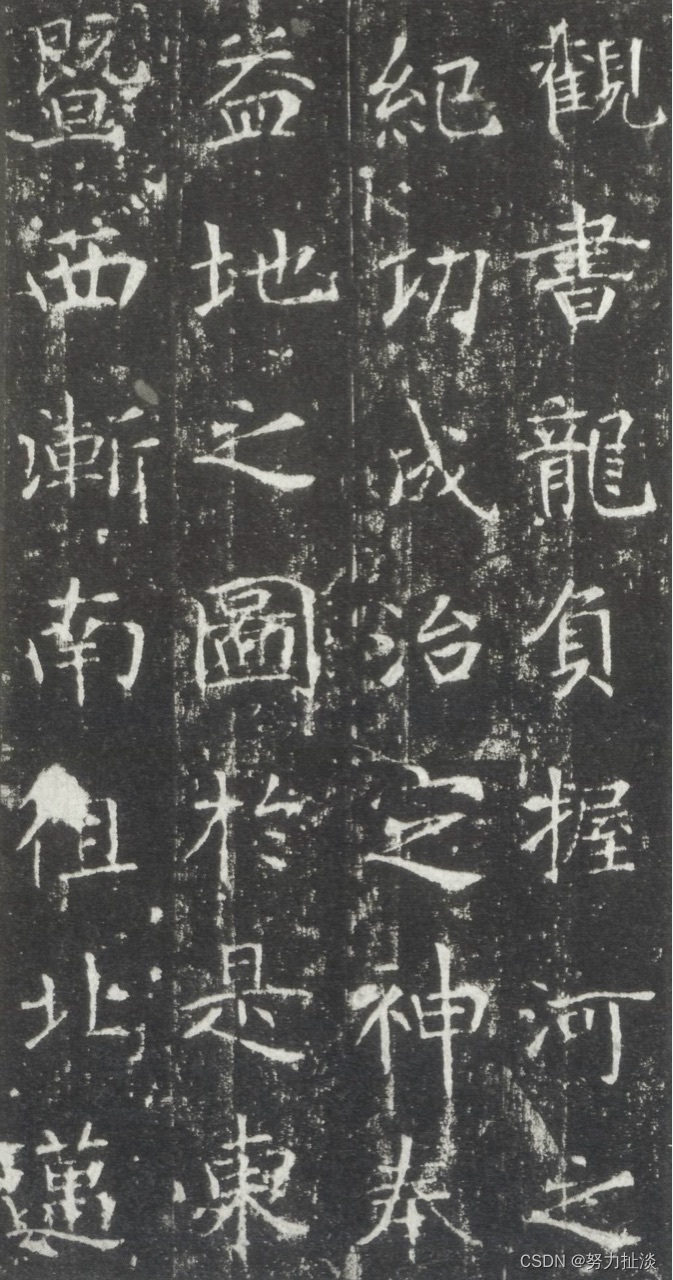 觀書龍負握河之
紀功成治定神奉
益地之圖於是東
暨西漸南徂北邁
CSDN @努力扯淡